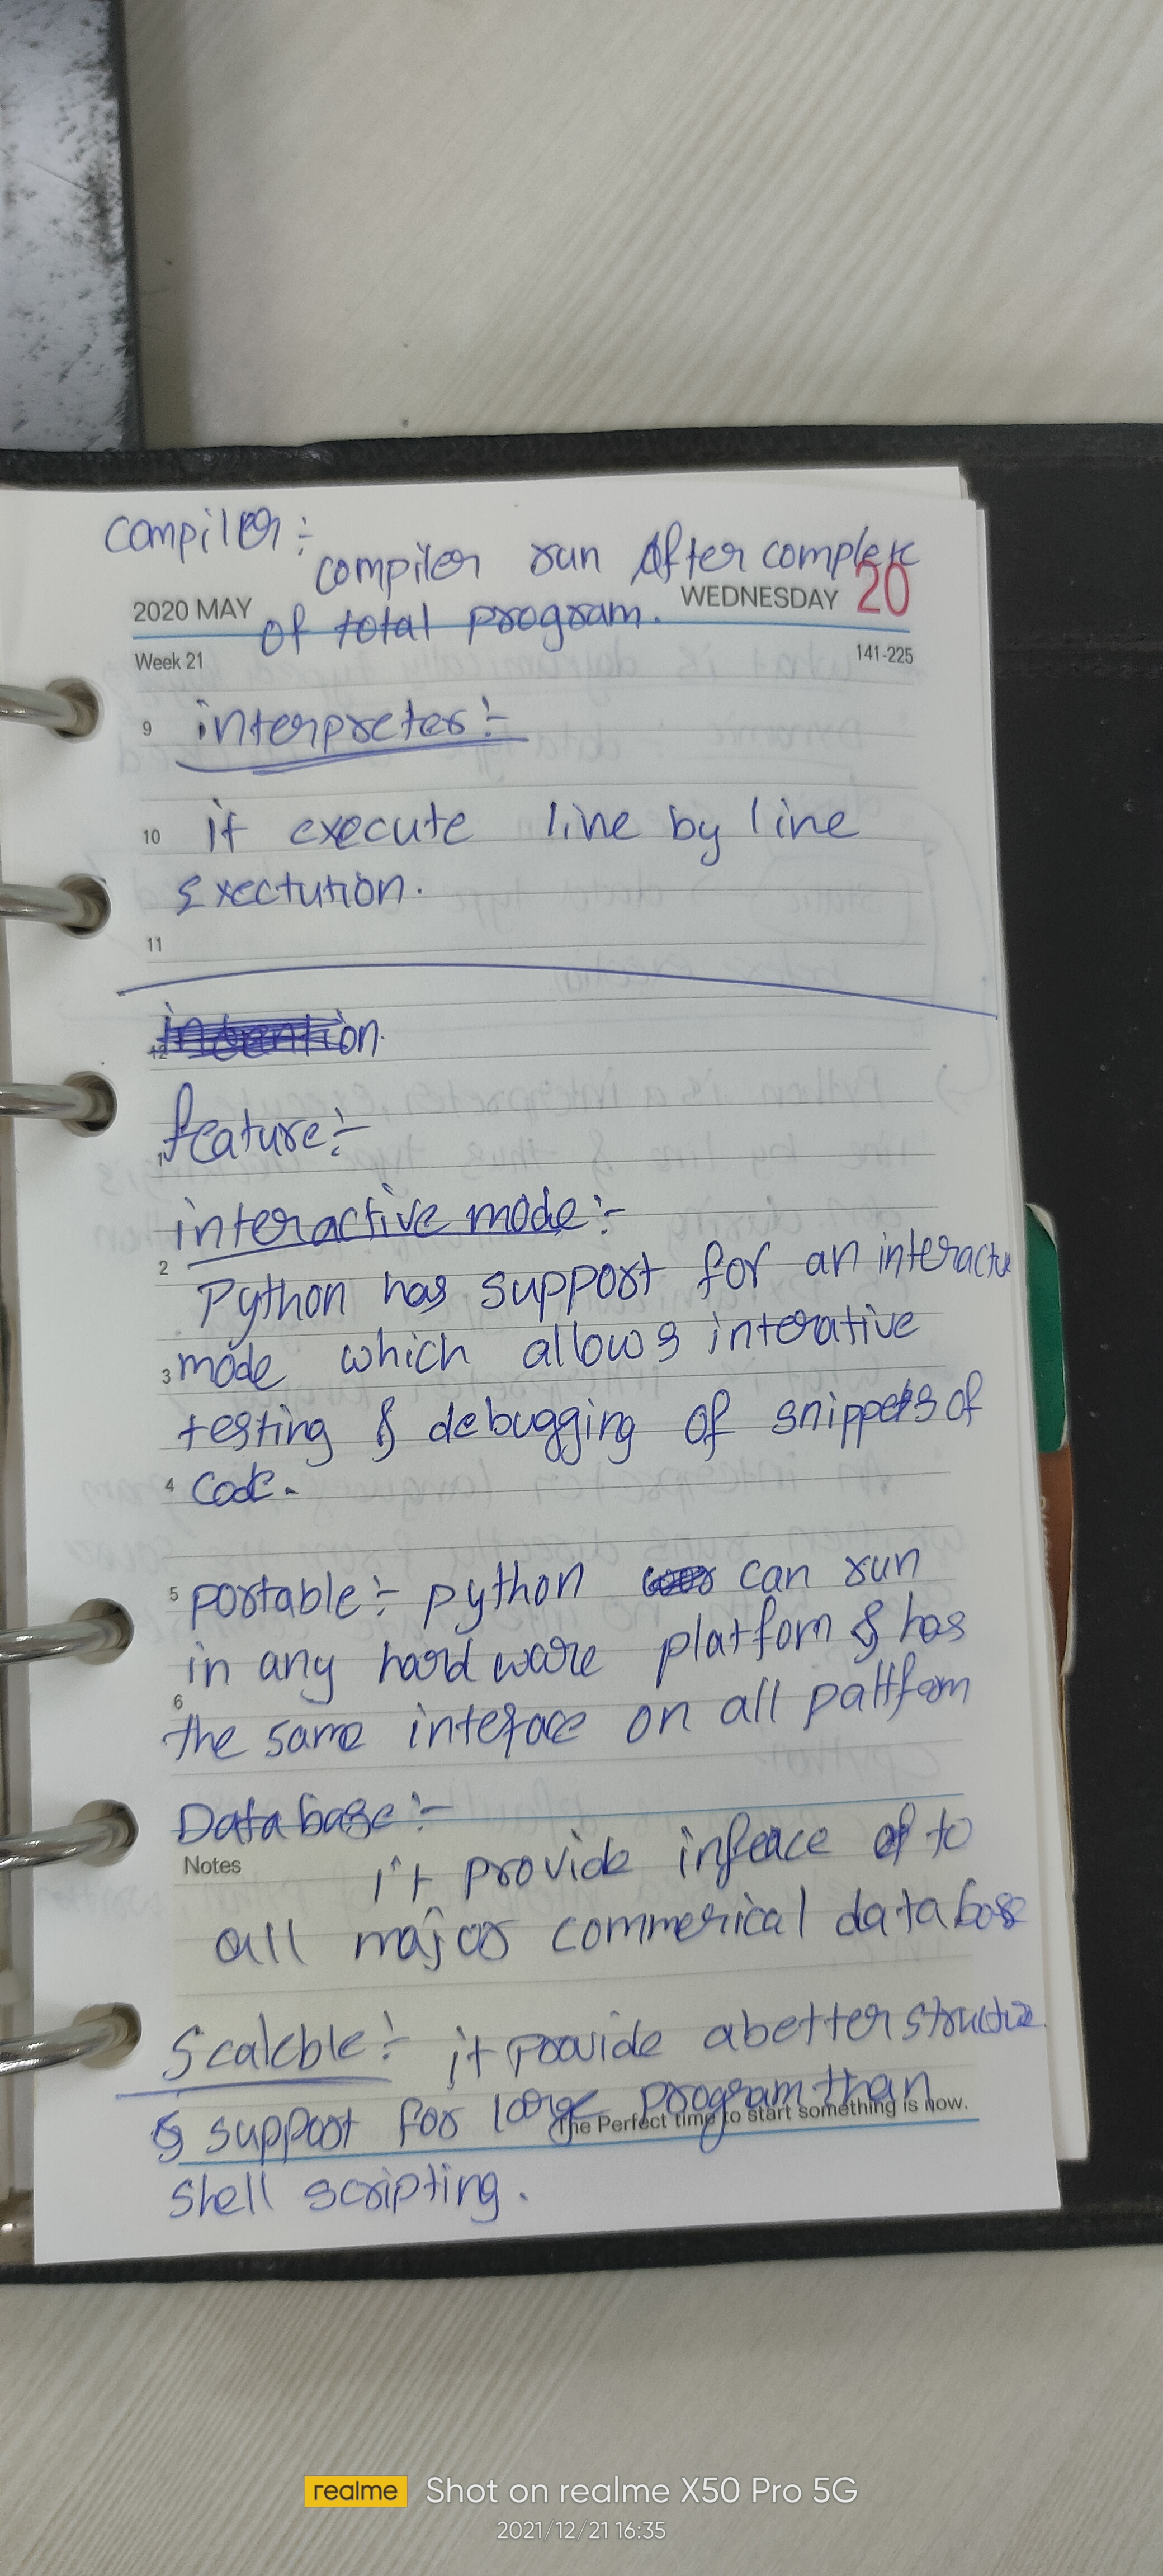 compiler :-
compiler run After complete
2020 MAY WEDNESDAY 20
of total program.
Week 21 141-225
9 interpreter :-
10 it execute line by line
Exectution.
11
12
feature :-
1
interactive mode :-
2
Python has support for an interactive
3 mode which allows interative
testing & debugging of snippets of
4 code.
5 portable :- python can run
in any hardware platform & has
6
the same inteface on all paltform
Database :-
Notes
it provide inface of to
all major commerical database
Scaleble :- it provide a better structure
& support for large program than
The Perfect time to start something is now.
shell scripting.
realme Shot on realme X50 Pro 5G
2021/12/21 16:35